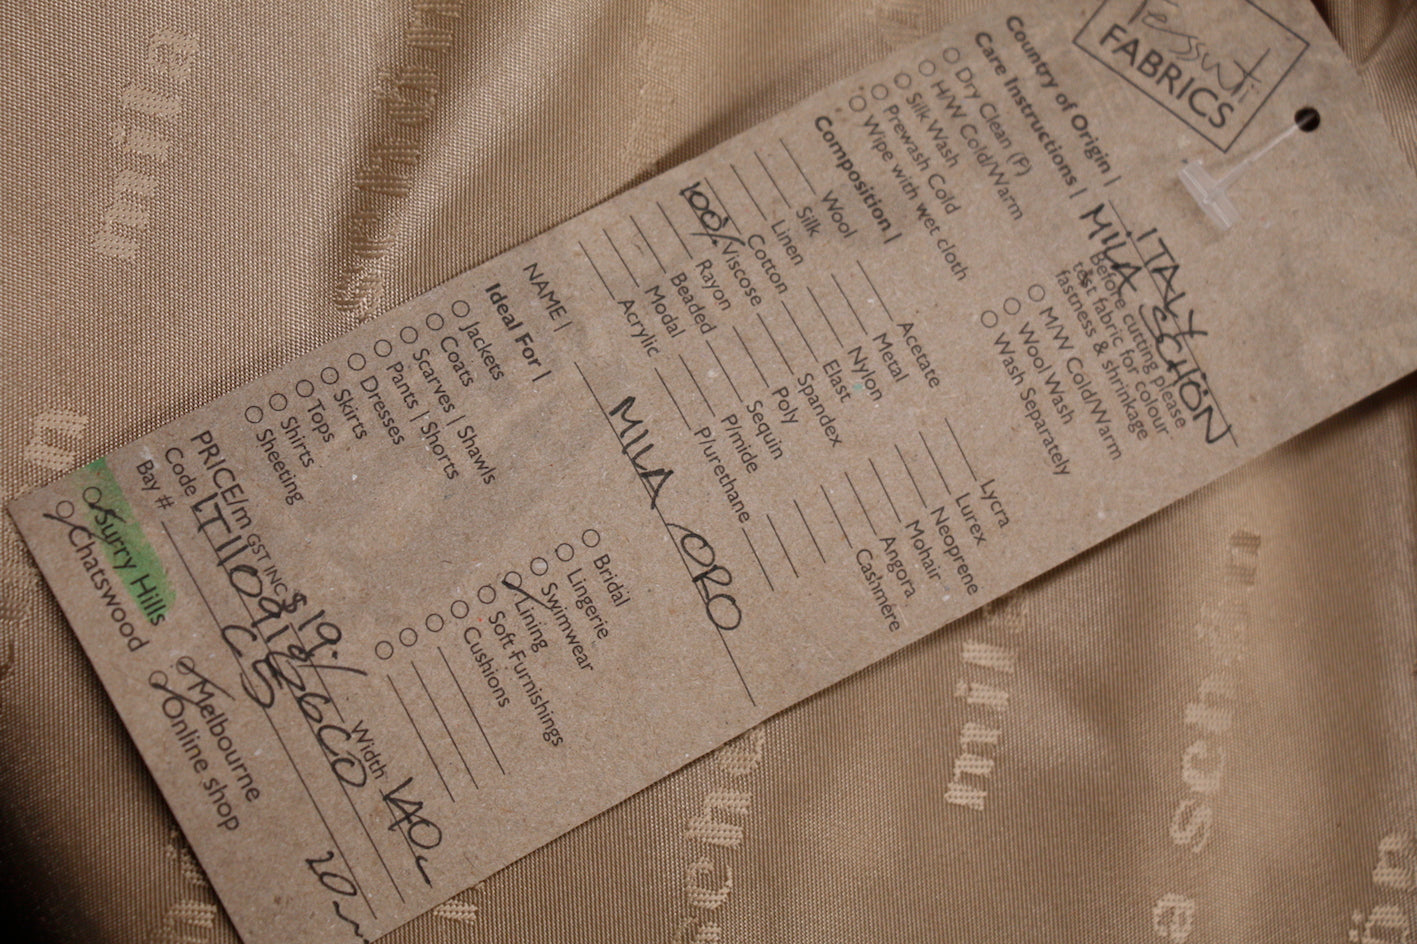 Tessuti
FABRICS
Country of Origin | ITALY
MILA SCHÖN
Care Instructions | Before cutting please
test fabric for colour
fastness & shrinkage
Dry Clean (P)
H/W Cold/Warm
Silk Wash
Prewash Cold
Wipe with wet cloth
M/W Cold/Warm
Wool Wash
Wash Separately
Composition |
Wool
Silk
Linen
Cotton
100% Viscose
Rayon
Beaded
Modal
Acrylic
Acetate
Metal
Nylon
Elast
Spandex
Poly
Sequin
P/mide
P/urethane
Lycra
Lurex
Neoprene
Mohair
Angora
Cashmere
NAME | MILA ORO
Ideal For |
Jackets
Coats
Scarves | Shawls
Pants | Shorts
Dresses
Skirts
Tops
Shirts
Sheeting
Bridal
Lingerie
Swimwear
Lining
Soft Furnishings
Cushions
PRICE/m GST INC $19.- Width 140c
Code
Bay # C5 20m
Surry Hills
Chatswood
Melbourne
Online shop
mila
schön
mila
schön